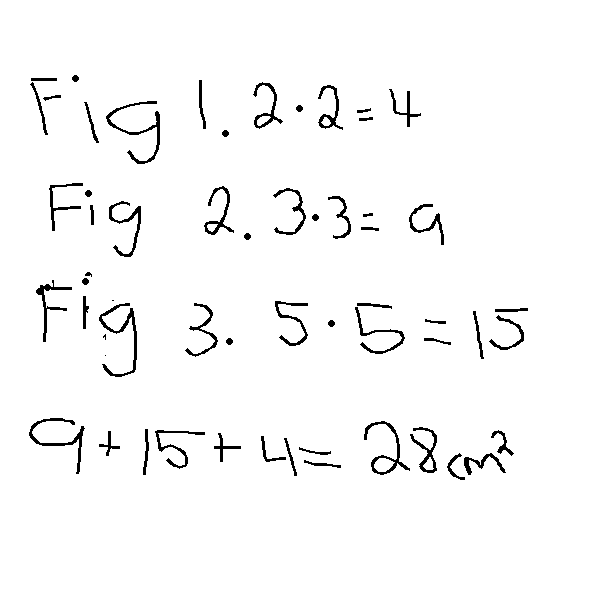 Fig 1. 2·2=4
Fig 2. 3·3=9
Fig 3. 5·5=15
9+15+4=28cm²